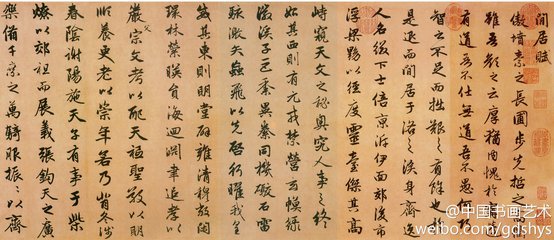 閒居賦
傲墳素之長圃步先哲之高
雖吾顏之云厚猶内愧於
有道吾不仕無道吾不愚何巧
智之不足而拙艱之有餘也於
是退而閒居于洛之涘身齊逸
人名綴下士倍京泝伊面郊後市
浮梁黝以徑度靈臺傑其高
峙窺天文之秘奧究人事之終
始其西則有元戎禁營玄幕綠
徽溪子巨黍異絭同機礮石雷
駭激矢蝱飛以先啓行曜我皇
威其東則明堂辟雍清穆敞閑
環林縈暎員海迴淵聿追孝以
嚴父宗文考以配天祗聖敬以明
順養更老以崇年若乃背冬涉
春陰謝陽施天子有事于柴
燎以郊祖而展義張鈞天之廣
樂備千乘之萬騎服振〻以齊
@中国书画艺术
weibo.com/gdshys